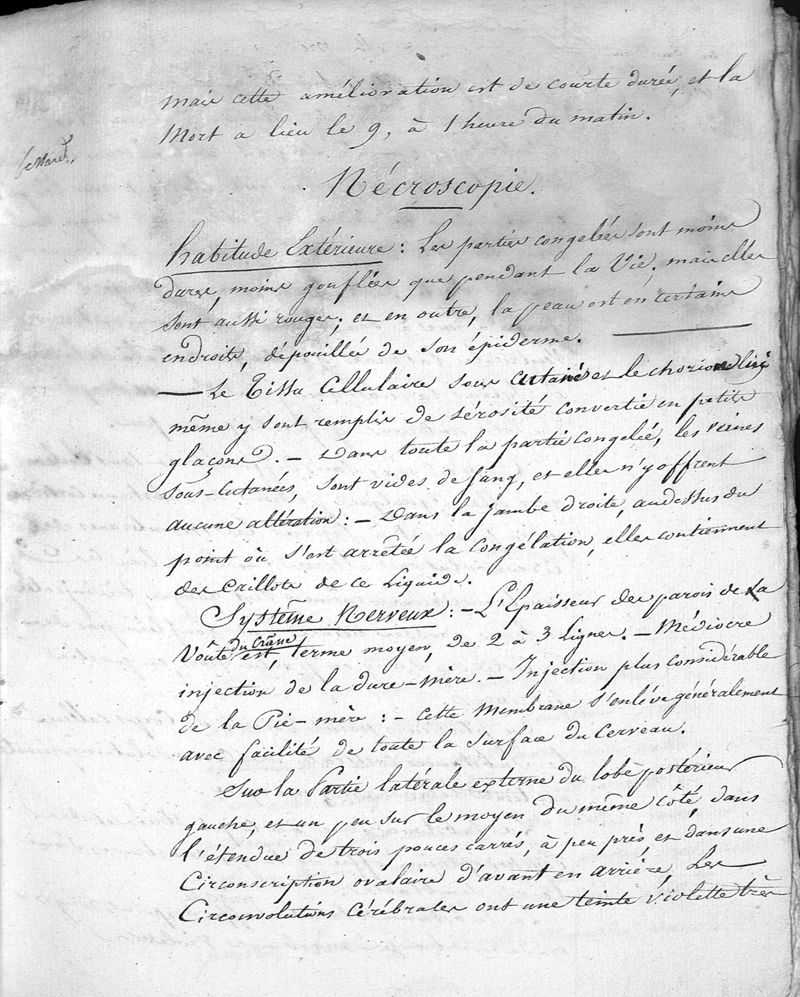 mais cette amélioration est de courte durée, et la
Mort a lieu le 9, à 1 heure du matin.
Nécroscopie.
habitude Extérieure : Les parties congelées sont moins
dures, moins gonflées que pendant la Vie, mais elles
sont aussi rouges; et en outre, la peau est en certains
endroits, dépouillée de son épiderme.
— Le Tissu Cellulaire sous cutané et le chorion lui
même y sont remplis de sérosité convertie en petits
glaçons. — Dans toute la partie congelée, les veines
sous-cutanées, sont vides de sang, et elles n'y offrent
aucune altération : — Dans la jambe droite, audessus du
point où s'est arrêtée la congélation, elles contiennent
des caillots de ce Liquide.
Système Nerveux : — L'Epaisseur des parois de la
Voûte du Crâne est, terme moyen, de 2 à 3 lignes. — Médiocre
injection de la dure-mère. — Injection plus considérable
de la Pie-mère : — cette Membrane s'enlève généralement
avec facilité de toute la surface du Cerveau.
Sur la Partie latérale externe du lobe postérieur
gauche, et un peu sur le moyen du même côté, dans
l'étendue de trois pouces carrés, à peu près, et dans une
Circonscription ovalaire d'avant en arrière, Les
Circonvolutions Cérébrales ont une teinte violette très